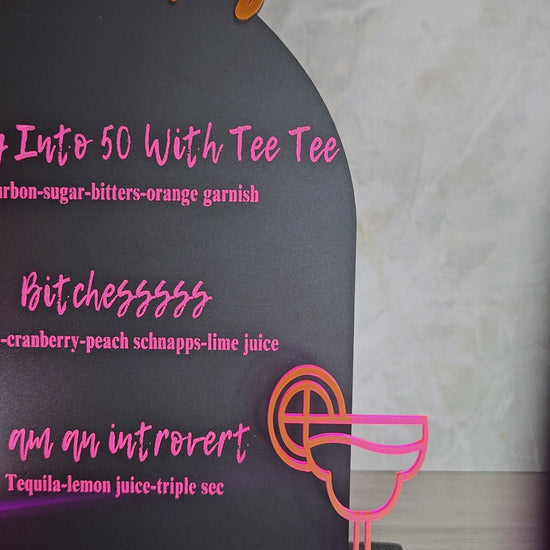 Into 50 With Tee Tee
-sugar-bitters-orange garnish
Bitchesssss
-cranberry-peach schnapps-lime juice
am an introvert
Tequila-lemon juice-triple sec